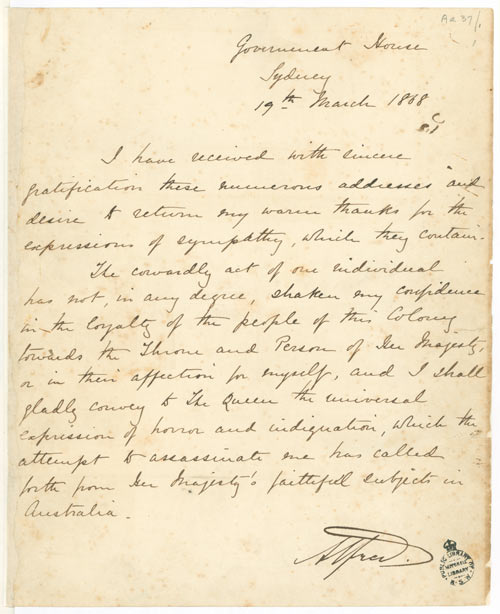 Aa 37/1
Government House
Sydney
19th March 1868
I have received with sincere
gratification these numerous addresses and
desire to return my warm thanks for the
expressions of sympathy, which they contain.
The cowardly act of one individual
has not, in any degree, shaken my confidence
in the loyalty of the people of this Colony
towards the Throne and Person of Her Majesty,
or in their affection for myself, and I shall
gladly convey to The Queen the universal
expression of horror and indignation, which the
attempt to assassinate me has called
forth from Her Majesty's faithful subjects in
Australia.
Alfred.
PUBLIC LIBRARY OF N.S.W.
MITCHELL
LIBRARY